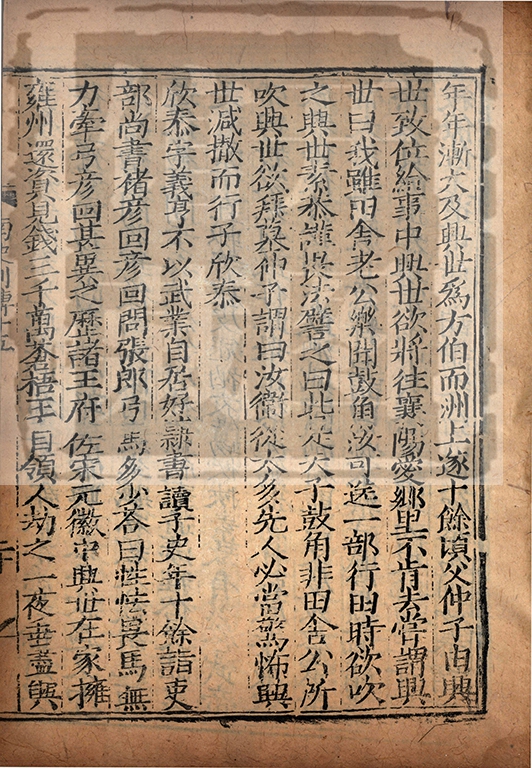 年年漸大及興世爲方伯而洲上遂十餘頃父仲子由興
世致位給事中興世欲將往襄陽愛鄉里不肯去嘗謂興
世曰我雖田舍老公樂聞鼓角汝可送一部行田時欲吹
之興世素恭謹畏法譬之曰此是天子鼓角非田舍公所
吹興世欲拜墓仲子謂曰汝衛從太多先人必當驚怖興
世減撤而行子欣泰
欣泰字義亨不以武業自居好隸書讀子史年十餘詣吏
部尚書褚彦回彦回問張郎弓馬多少荅曰性怯畏馬無
力牽弓彦回甚異之歷諸王府佐宋元徽中興世在家擁
雍州還資見錢三千萬蒼梧王自領人劫之一夜垂盡興